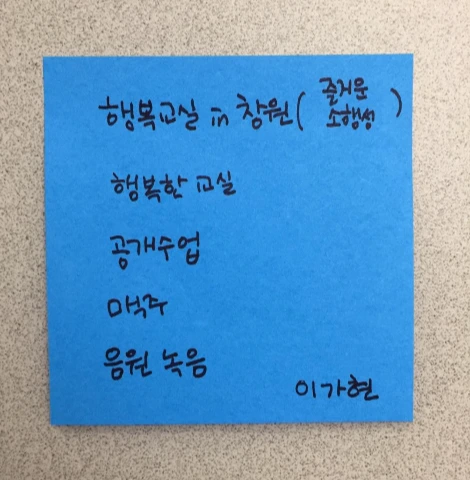 행복교실 in 창원 (즐거운 소행성)
행복한 교실
공개수업
맥주
응원 녹음
이가현